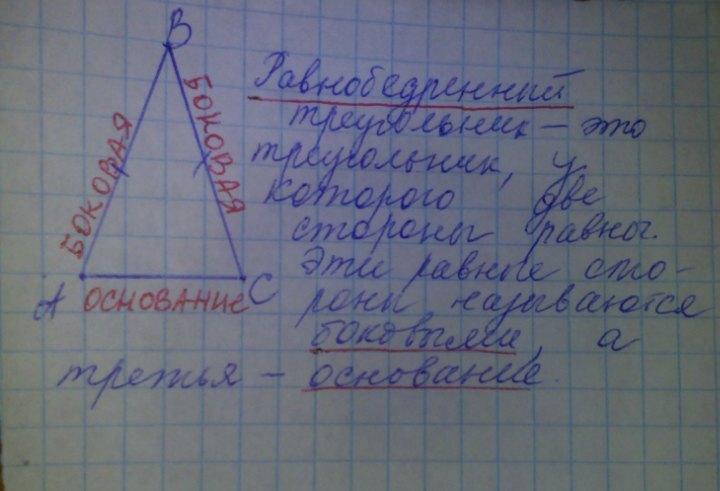 B
БОКОВАЯ
БОКОВАЯ
A
ОСНОВАНИЕ
C
Равнобедренный
треугольник – это
треугольник, у
которого две
стороны равны.
Эти равные сто-
роны называются
боковыми, а
третья – основание.